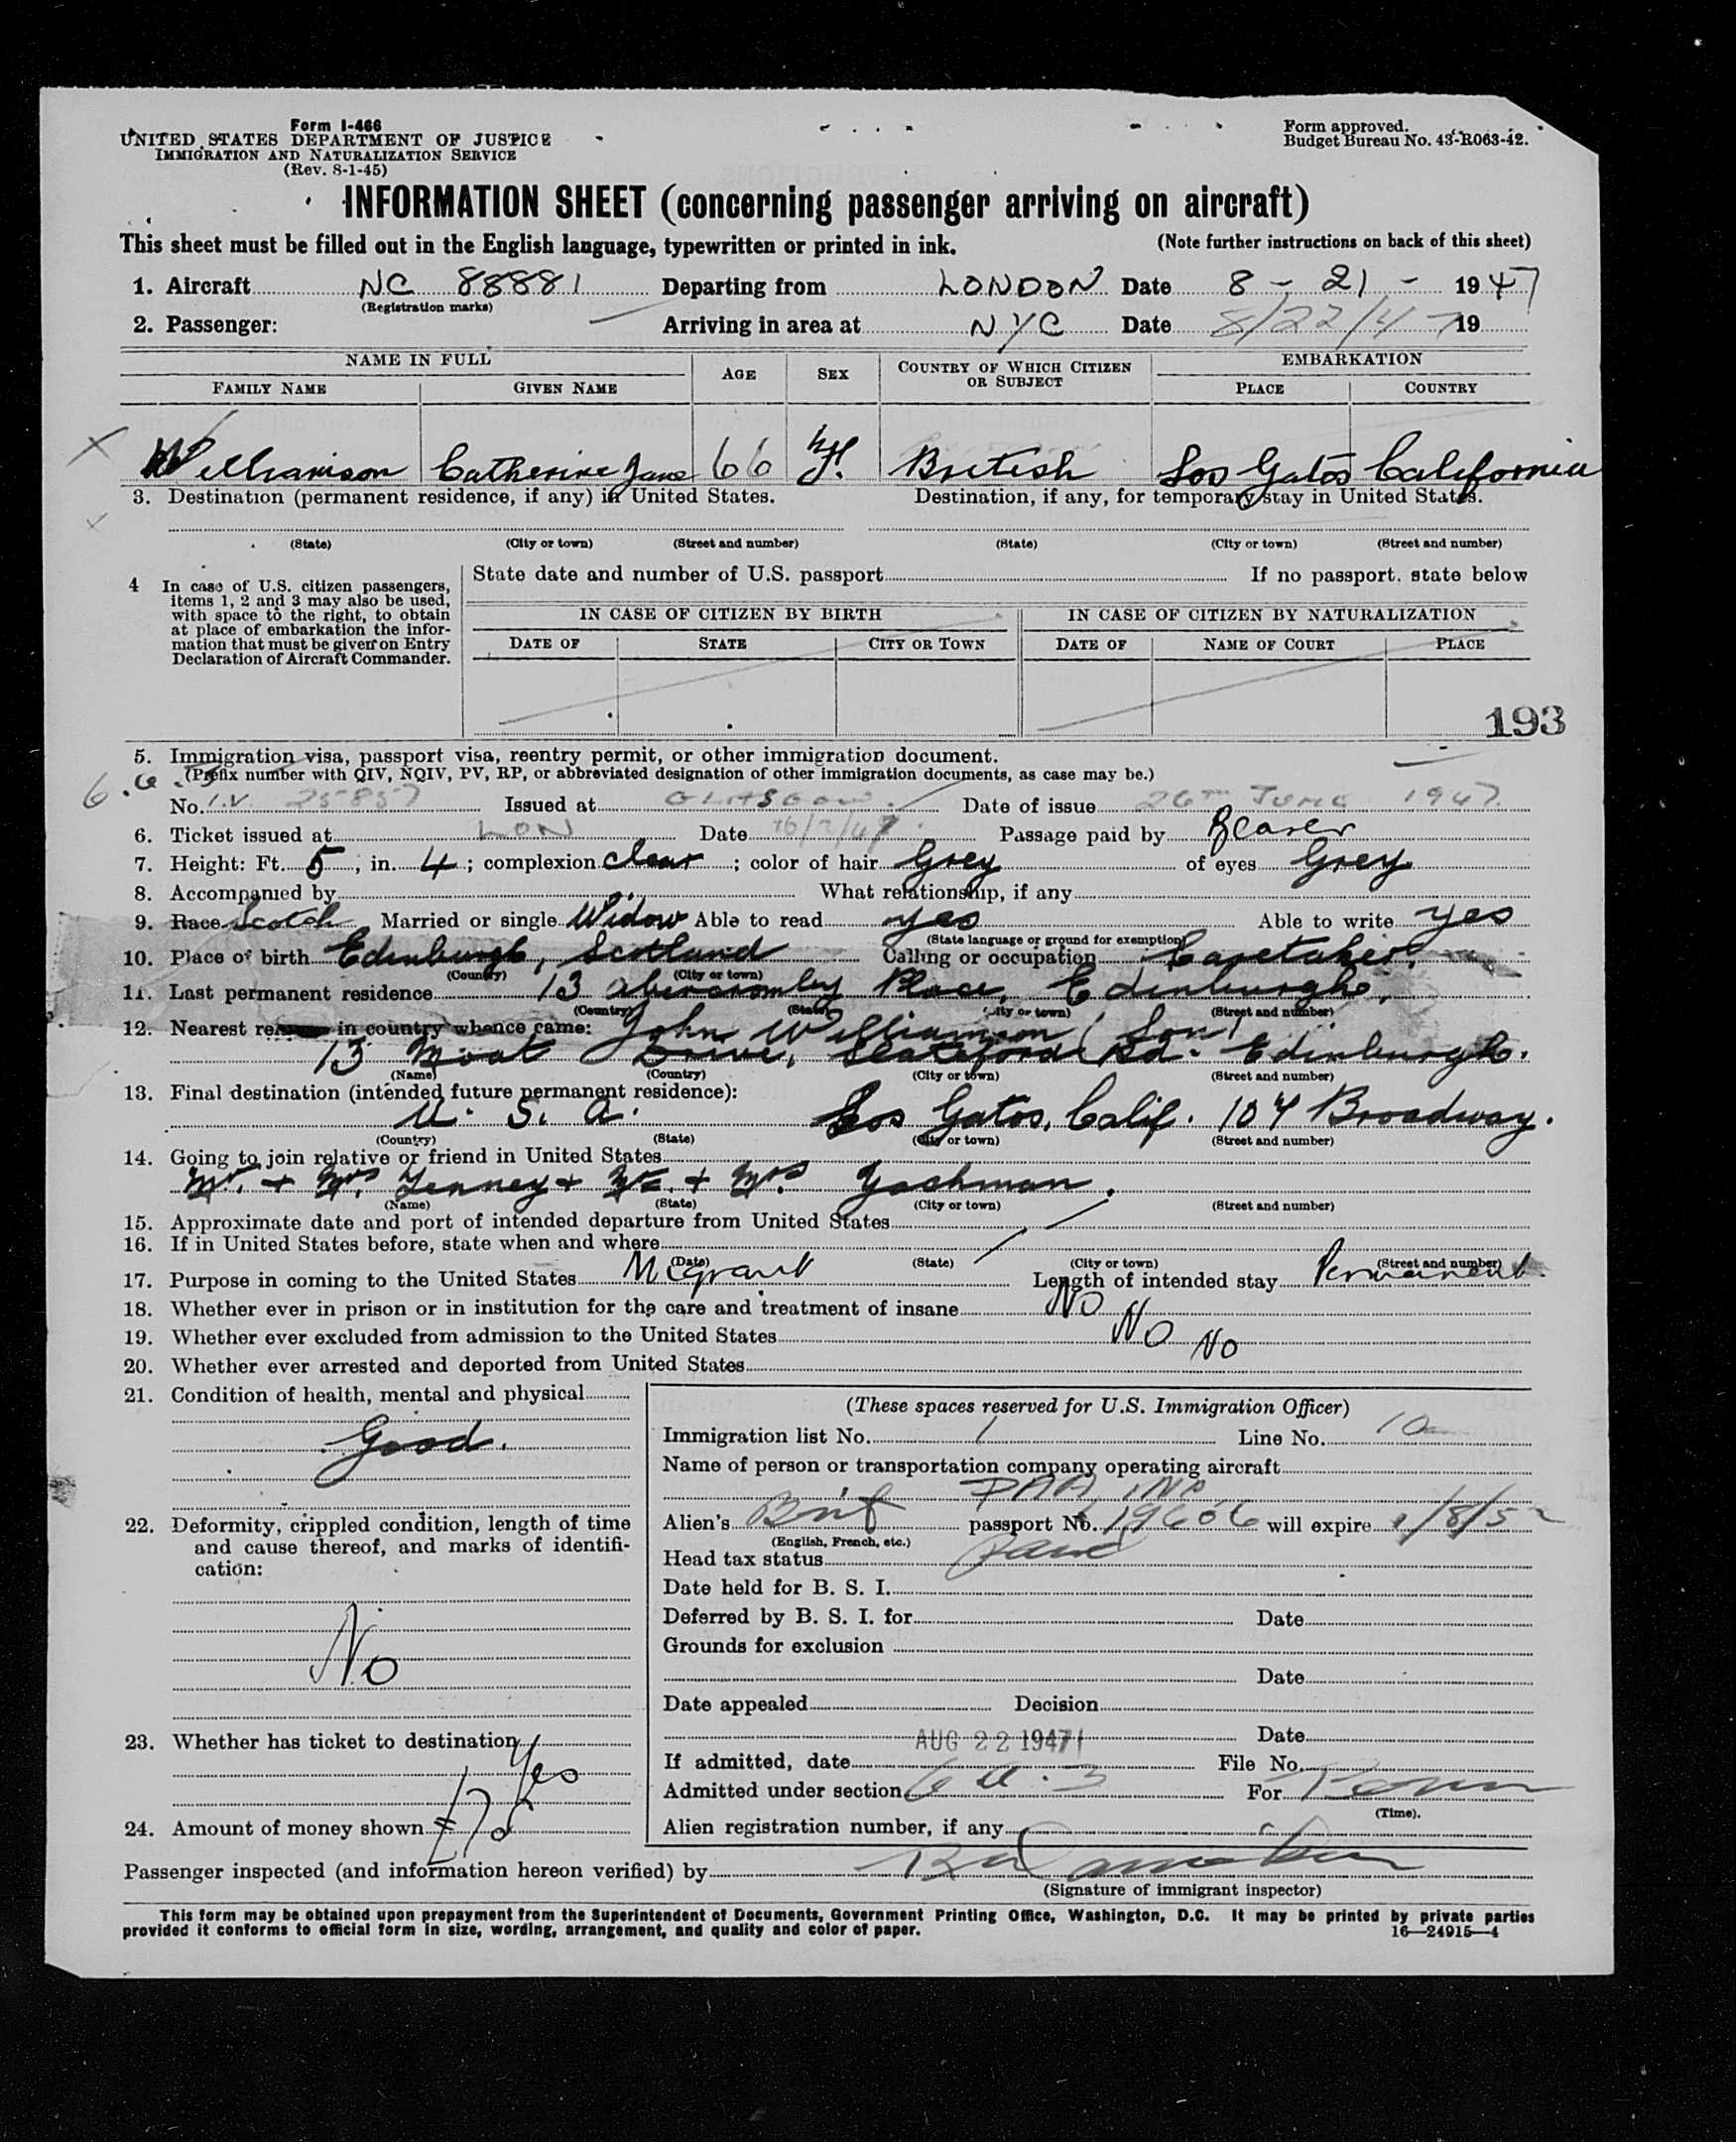 Form I-466
UNITED STATES DEPARTMENT OF JUSTICE
IMMIGRATION AND NATURALIZATION SERVICE
(Rev. 8-1-45)
Form approved.
Budget Bureau No. 43-R063-42.
INFORMATION SHEET (concerning passenger arriving on aircraft)
This sheet must be filled out in the English language, typewritten or printed in ink. (Note further instructions on back of this sheet)
1. Aircraft NC 88881 Departing from LONDON Date 8 - 21 - 1947
(Registration marks)
2. Passenger: Arriving in area at NYC Date 8/22/47 19
NAME IN FULL AGE SEX COUNTRY OF WHICH CITIZEN OR SUBJECT EMBARKATION
FAMILY NAME GIVEN NAME PLACE COUNTRY
Williamson Catherine Jane 66 F. British Los Gatos California
3. Destination (permanent residence, if any) in United States. Destination, if any, for temporary stay in United States.
(State) (City or town) (Street and number) (State) (City or town) (Street and number)
4 In case of U.S. citizen passengers, items 1, 2 and 3 may also be used, with space to the right, to obtain at place of embarkation the information that must be given on Entry Declaration of Aircraft Commander.
State date and number of U.S. passport If no passport, state below
IN CASE OF CITIZEN BY BIRTH IN CASE OF CITIZEN BY NATURALIZATION
DATE OF STATE CITY OR TOWN DATE OF NAME OF COURT PLACE
193
5. Immigration visa, passport visa, reentry permit, or other immigration document.
(Prefix number with QIV, NQIV, PV, RP, or abbreviated designation of other immigration documents, as case may be.)
No. I.V. 25857 Issued at GLASGOW Date of issue 26TH JUNE 1947
6. Ticket issued at LON Date Passage paid by Bearer
7. Height: Ft. 5, in. 4; complexion clear; color of hair Grey of eyes Grey
8. Accompanied by What relationship, if any
9. Race Scotch Married or single Widow Able to read yes Able to write yes
(State language or ground for exemption)
10. Place of birth Edinburgh, Scotland Calling or occupation Caretaker.
(Country) (City or town)
11. Last permanent residence 13 Abercromby Place, Edinburgh,
(Country) (State) (City or town) (Street and number)
12. Nearest in country whence came: John Williamson (Son)
13 Moat Drive, Slateford Rd. Edinburgh.
(Name) (Country) (City or town) (Street and number)
13. Final destination (intended future permanent residence):
U. S. A. Los Gatos, Calif. 104 Broadway.
(Country) (State) (City or town) (Street and number)
14. Going to join relative or friend in United States
Mr. + Mrs. Tenney + Mr. + Mrs. Yochman.
(Name) (State) (City or town) (Street and number)
15. Approximate date and port of intended departure from United States
16. If in United States before, state when and where
(Date) (State) (City or town) (Street and number)
17. Purpose in coming to the United States Migrant Length of intended stay Permanent.
18. Whether ever in prison or in institution for the care and treatment of insane No
19. Whether ever excluded from admission to the United States No
20. Whether ever arrested and deported from United States No
21. Condition of health, mental and physical
Good.
22. Deformity, crippled condition, length of time and cause thereof, and marks of identification:
No
23. Whether has ticket to destination Yes
24. Amount of money shown
(These spaces reserved for U.S. Immigration Officer)
Immigration list No. 1 Line No. 10
Name of person or transportation company operating aircraft
PAA INC
Alien's Brit passport No. 19606 will expire 1/8/52
(English, French, etc.)
Head tax status Paid
Date held for B. S. I.
Deferred by B. S. I. for Date
Grounds for exclusion
Date
Date appealed Decision
Date
AUG 22 1947
If admitted, date File No.
Admitted under section 6 a. 3 For Perm
(Time).
Alien registration number, if any
Passenger inspected (and information hereon verified) by
(Signature of immigrant inspector)
This form may be obtained upon prepayment from the Superintendent of Documents, Government Printing Office, Washington, D.C. It may be printed by private parties
provided it conforms to official form in size, wording, arrangement, and quality and color of paper. 16—24915—4